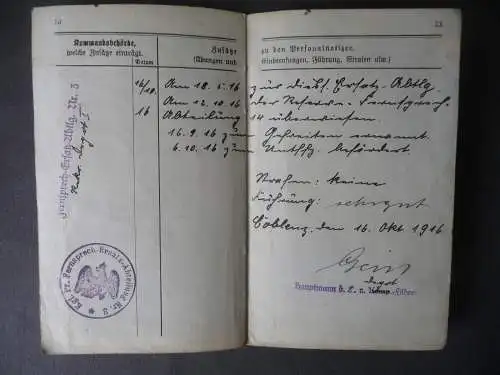 Kommandobehörde,
welche Zusätze einträgt.
Datum
Zusätze
(Übungen und
zu den Personalnotizen.
Einberufungen, Führung, Strafen usw.)
Fernsprech-Ersatz-Abtlg. Nr. 3
Rekr. Depot I
16/10.
16
Am 18. 5. 16 zur diess. Ersatz-Abtlg
Am 12. 10. 16 der Reserve-Fernsprech-
Abteilung 14 überwiesen.
16. 9. 16 zum Gefreiten ernannt
6. 10. 16 zum Untffz. befördert.
Strafen: keine
Führung: sehr gut
Coblenz, den 16. Okt. 1916
Hauptmann d. L. u. Depot-Führer
Kgl. Pr. Fernsprech-Ersatz-Abteilung Nr. 3